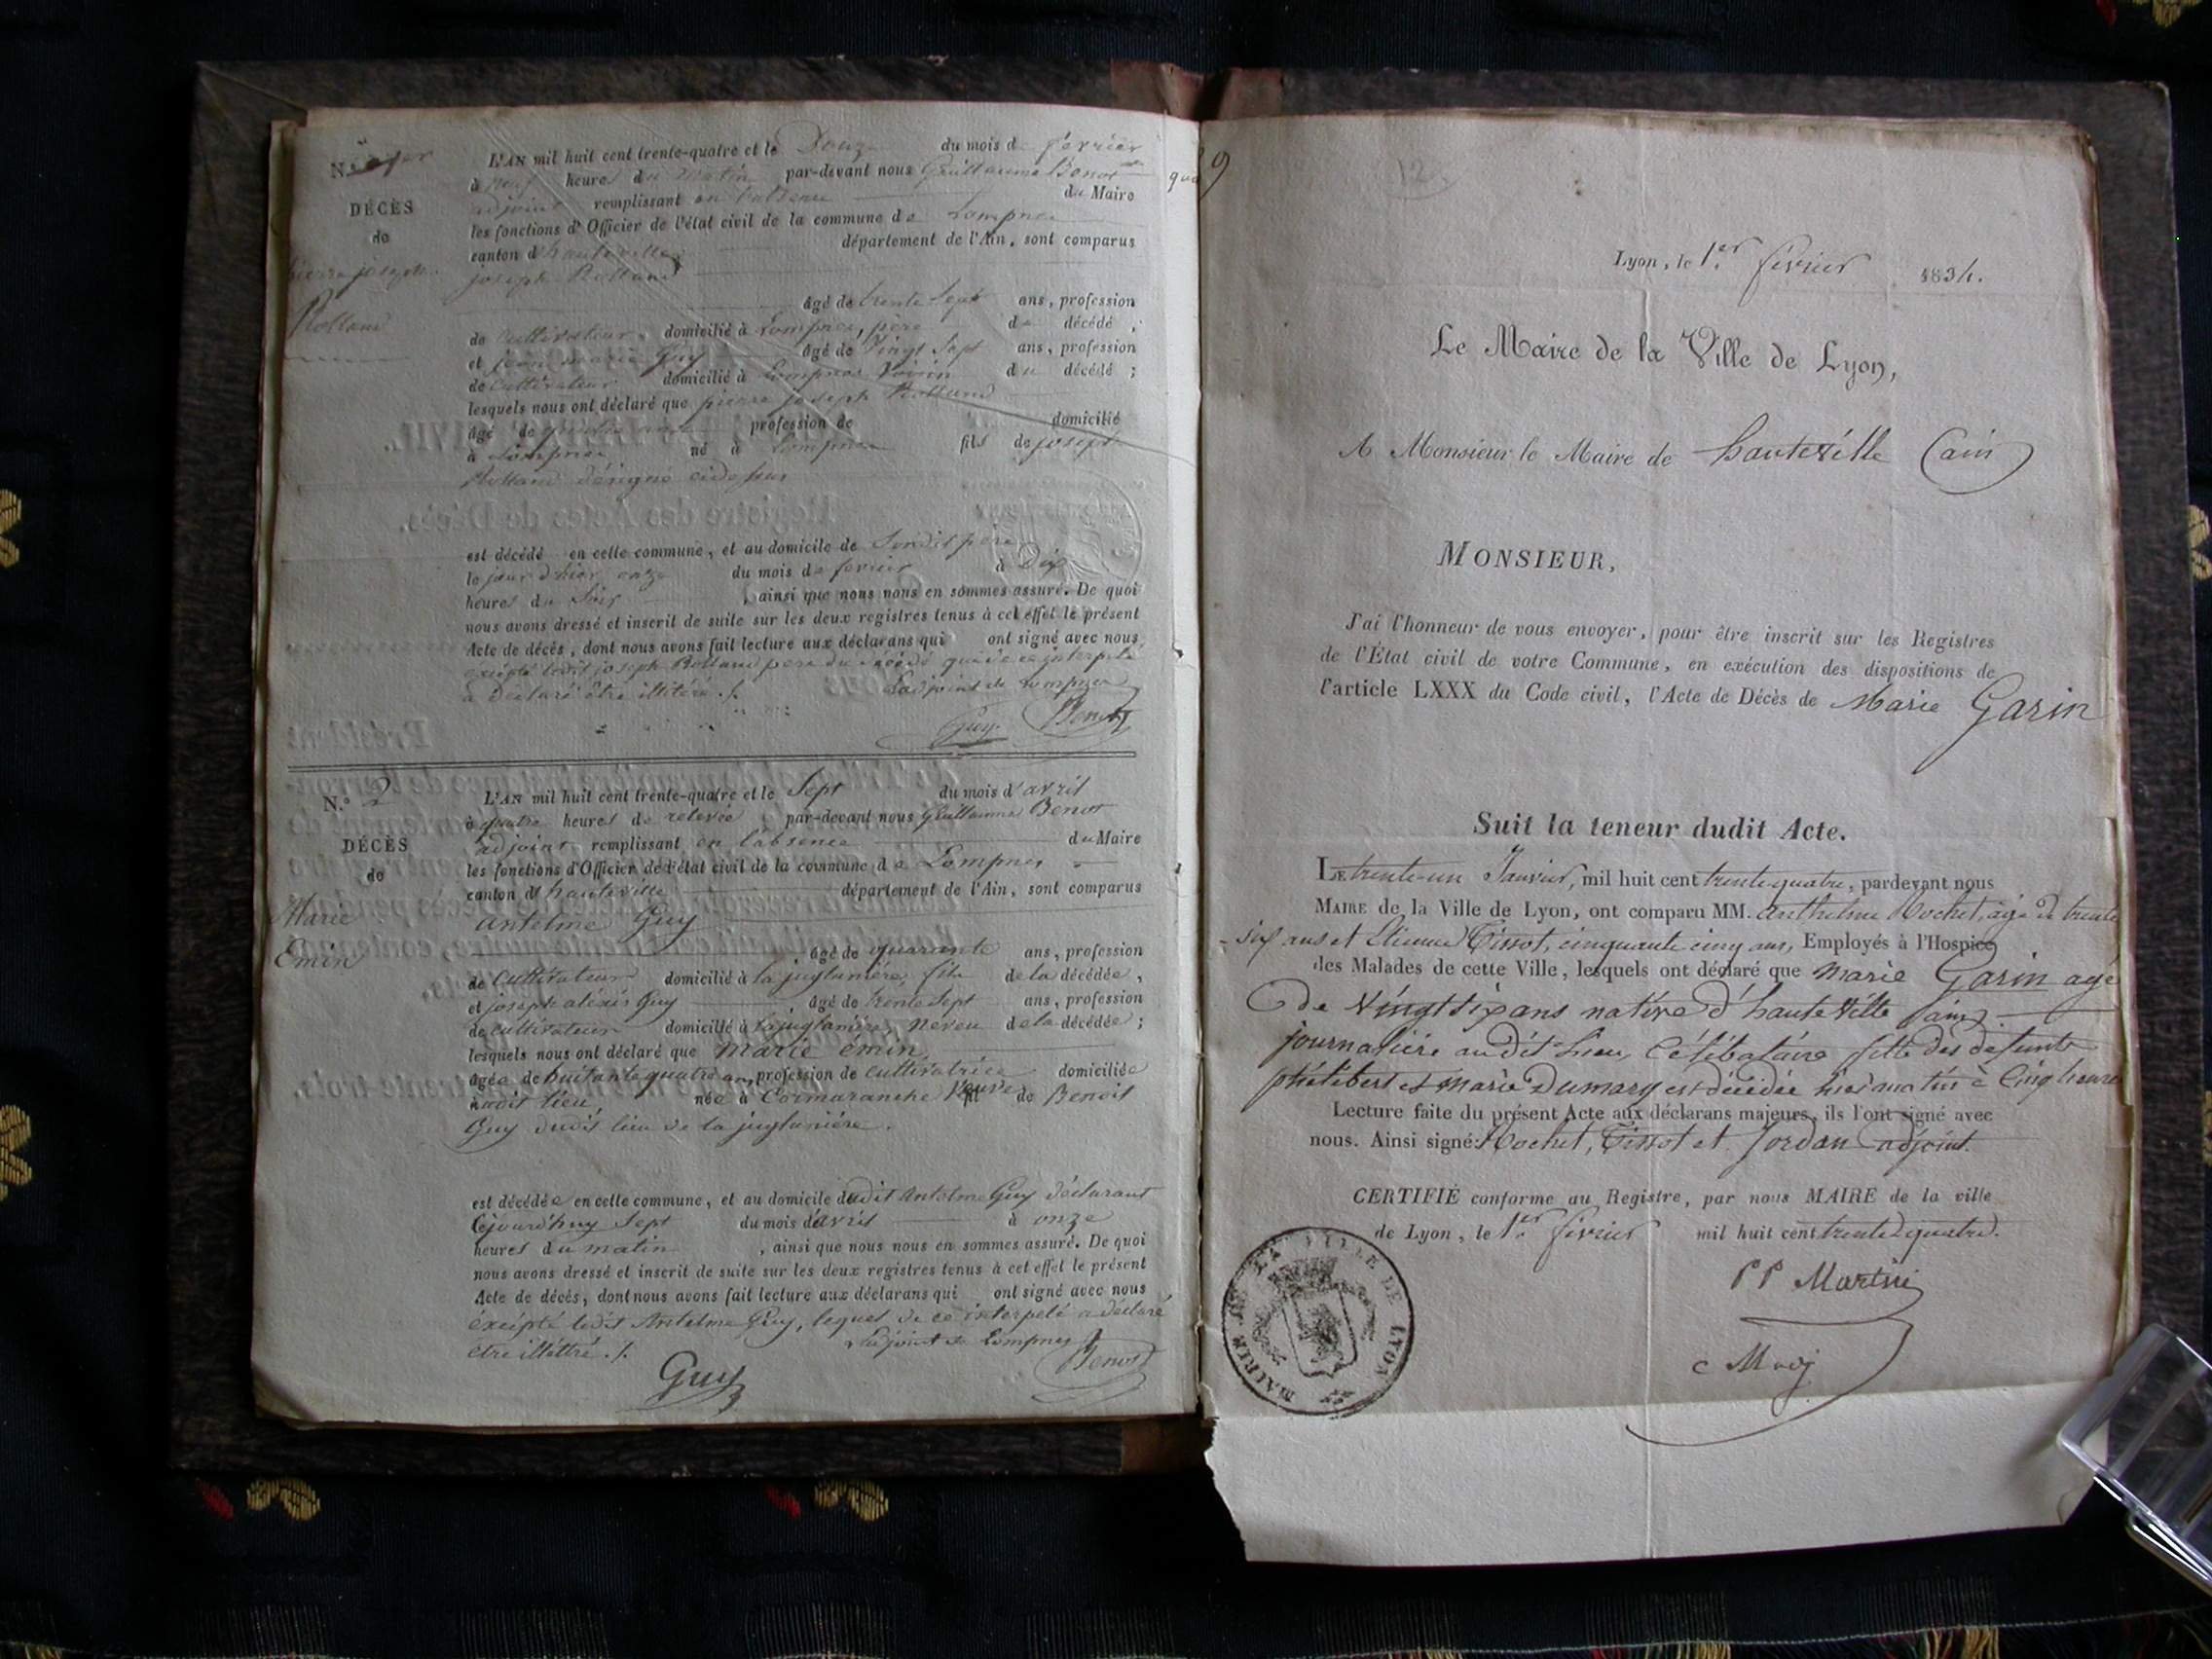 N.o 1er
L'AN mil huit cent trente-quatre et le Douze du mois de février
à neuf heures du matin par-devant nous Guillaume Benot
adjoint remplissant en l'absence du Maire
DÉCÈS
les fonctions d'Officier de l'état civil de la commune de Lompnes
de
canton d'hauteville département de l'Ain, sont comparus
pierre joseph
Rolland
joseph Rolland
âgé de trente sept ans, profession
de Cultivateur domicilié à Lompnes, père du décédé,
et jean marie Guy âgé de Vingt Sept ans, profession
de Cultivateur domicilié à Lompnes Voisin du décédé ;
lesquels nous ont déclaré que pierre joseph Rolland
âgé de profession de domicilié
à Lompnes né à Lompnes fils de joseph
Rolland désigné cidessus
est décédé en celle commune, et au domicile de Sondit père
le jour d'hier onze du mois de fevrier à Dix
heures du Soir , ainsi que nous nous en sommes assuré. De quoi
nous avons dressé et inscrit de suite sur les deux registres tenus à cet effet le présent
Acte de décès, dont nous avons fait lecture aux déclarans qui ont signé avec nous
excépté ledit joseph Rolland pere du décédé qui de ce interpelé
a Déclaré être illitéré ./.
L'adjoint de Lompnes
Guy Benot
N.o 2
L'AN mil huit cent trente-quatre et le Sept du mois d'avril
à quatre heures de relevée par-devant nous Guillaume Benot
adjoint remplissant en l'absence du Maire
DÉCÈS
les fonctions d'Officier de l'état civil de la commune de Lompnes
de
canton d'hauteville département de l'Ain, sont comparus
Marie
Emin
antelme Guy
âgé de quarante ans, profession
de Cultivateur domicilié à la juglanière, fils de la décédée,
et joseph alexis Guy âgé de trente Sept ans, profession
de cultivateur domicilié à la juglanière, neveu de la décédée ;
lesquels nous ont déclaré que marie émin
âgée de huitante quatre ans, profession de cultivatrice domiciliée
audit lieu née à Cormaranche Veuve de Benoit
Guy dudit lieu de la juglanière.
est décédée en celle commune, et au domicile dudit Antelme Guy déclarant
Cejourd'huy Sept du mois d'avril à onze
heures du matin , ainsi que nous nous en sommes assuré. De quoi
nous avons dressé et inscrit de suite sur les deux registres tenus à cet effet le présent
Acte de décès, dont nous avons fait lecture aux déclarans qui ont signé avec nous
excépté ledit Antelme Guy, lequel de ce interpelé a déclaré
être illéttré ./.
L'adjoint de Lompnes
Guy Benot
9
12
Lyon, le 1.er février 1834.
Le Maire de la Ville de Lyon,
A Monsieur le Maire de hauteville (ain)
MONSIEUR,
J'ai l'honneur de vous envoyer, pour être inscrit sur les Registres
de l'État civil de votre Commune, en exécution des dispositions de
l'article LXXX du Code civil, l'Acte de Décès de Marie Garin
Suit la teneur dudit Acte.
LE trente-un Janvier, mil huit cent trente quatre, pardevant nous
MAIRE de la Ville de Lyon, ont comparu MM. Anthelme Rochet, âgé de trente
-six ans et Etienne Tissot, cinquante cinq ans, Employés à l'Hospice
des Malades de cette Ville, lesquels ont déclaré que Marie Garin agée
de Vingt six ans native d'hauteville (ain)
journalière audit Lieu, Célibataire fille des defunts
philibert et Marie Dumarg est décédée hier matin à Cinq heures
Lecture faite du présent Acte aux déclarans majeurs, ils l'ont signé avec
nous. Ainsi signé: Rochet, Tissot et Jordan adjoint.
CERTIFIÉ conforme au Registre, par nous MAIRE de la ville
de Lyon, le 1.er février mil huit cent trente quatre.
MAIRIE DE LA VILLE DE LYON